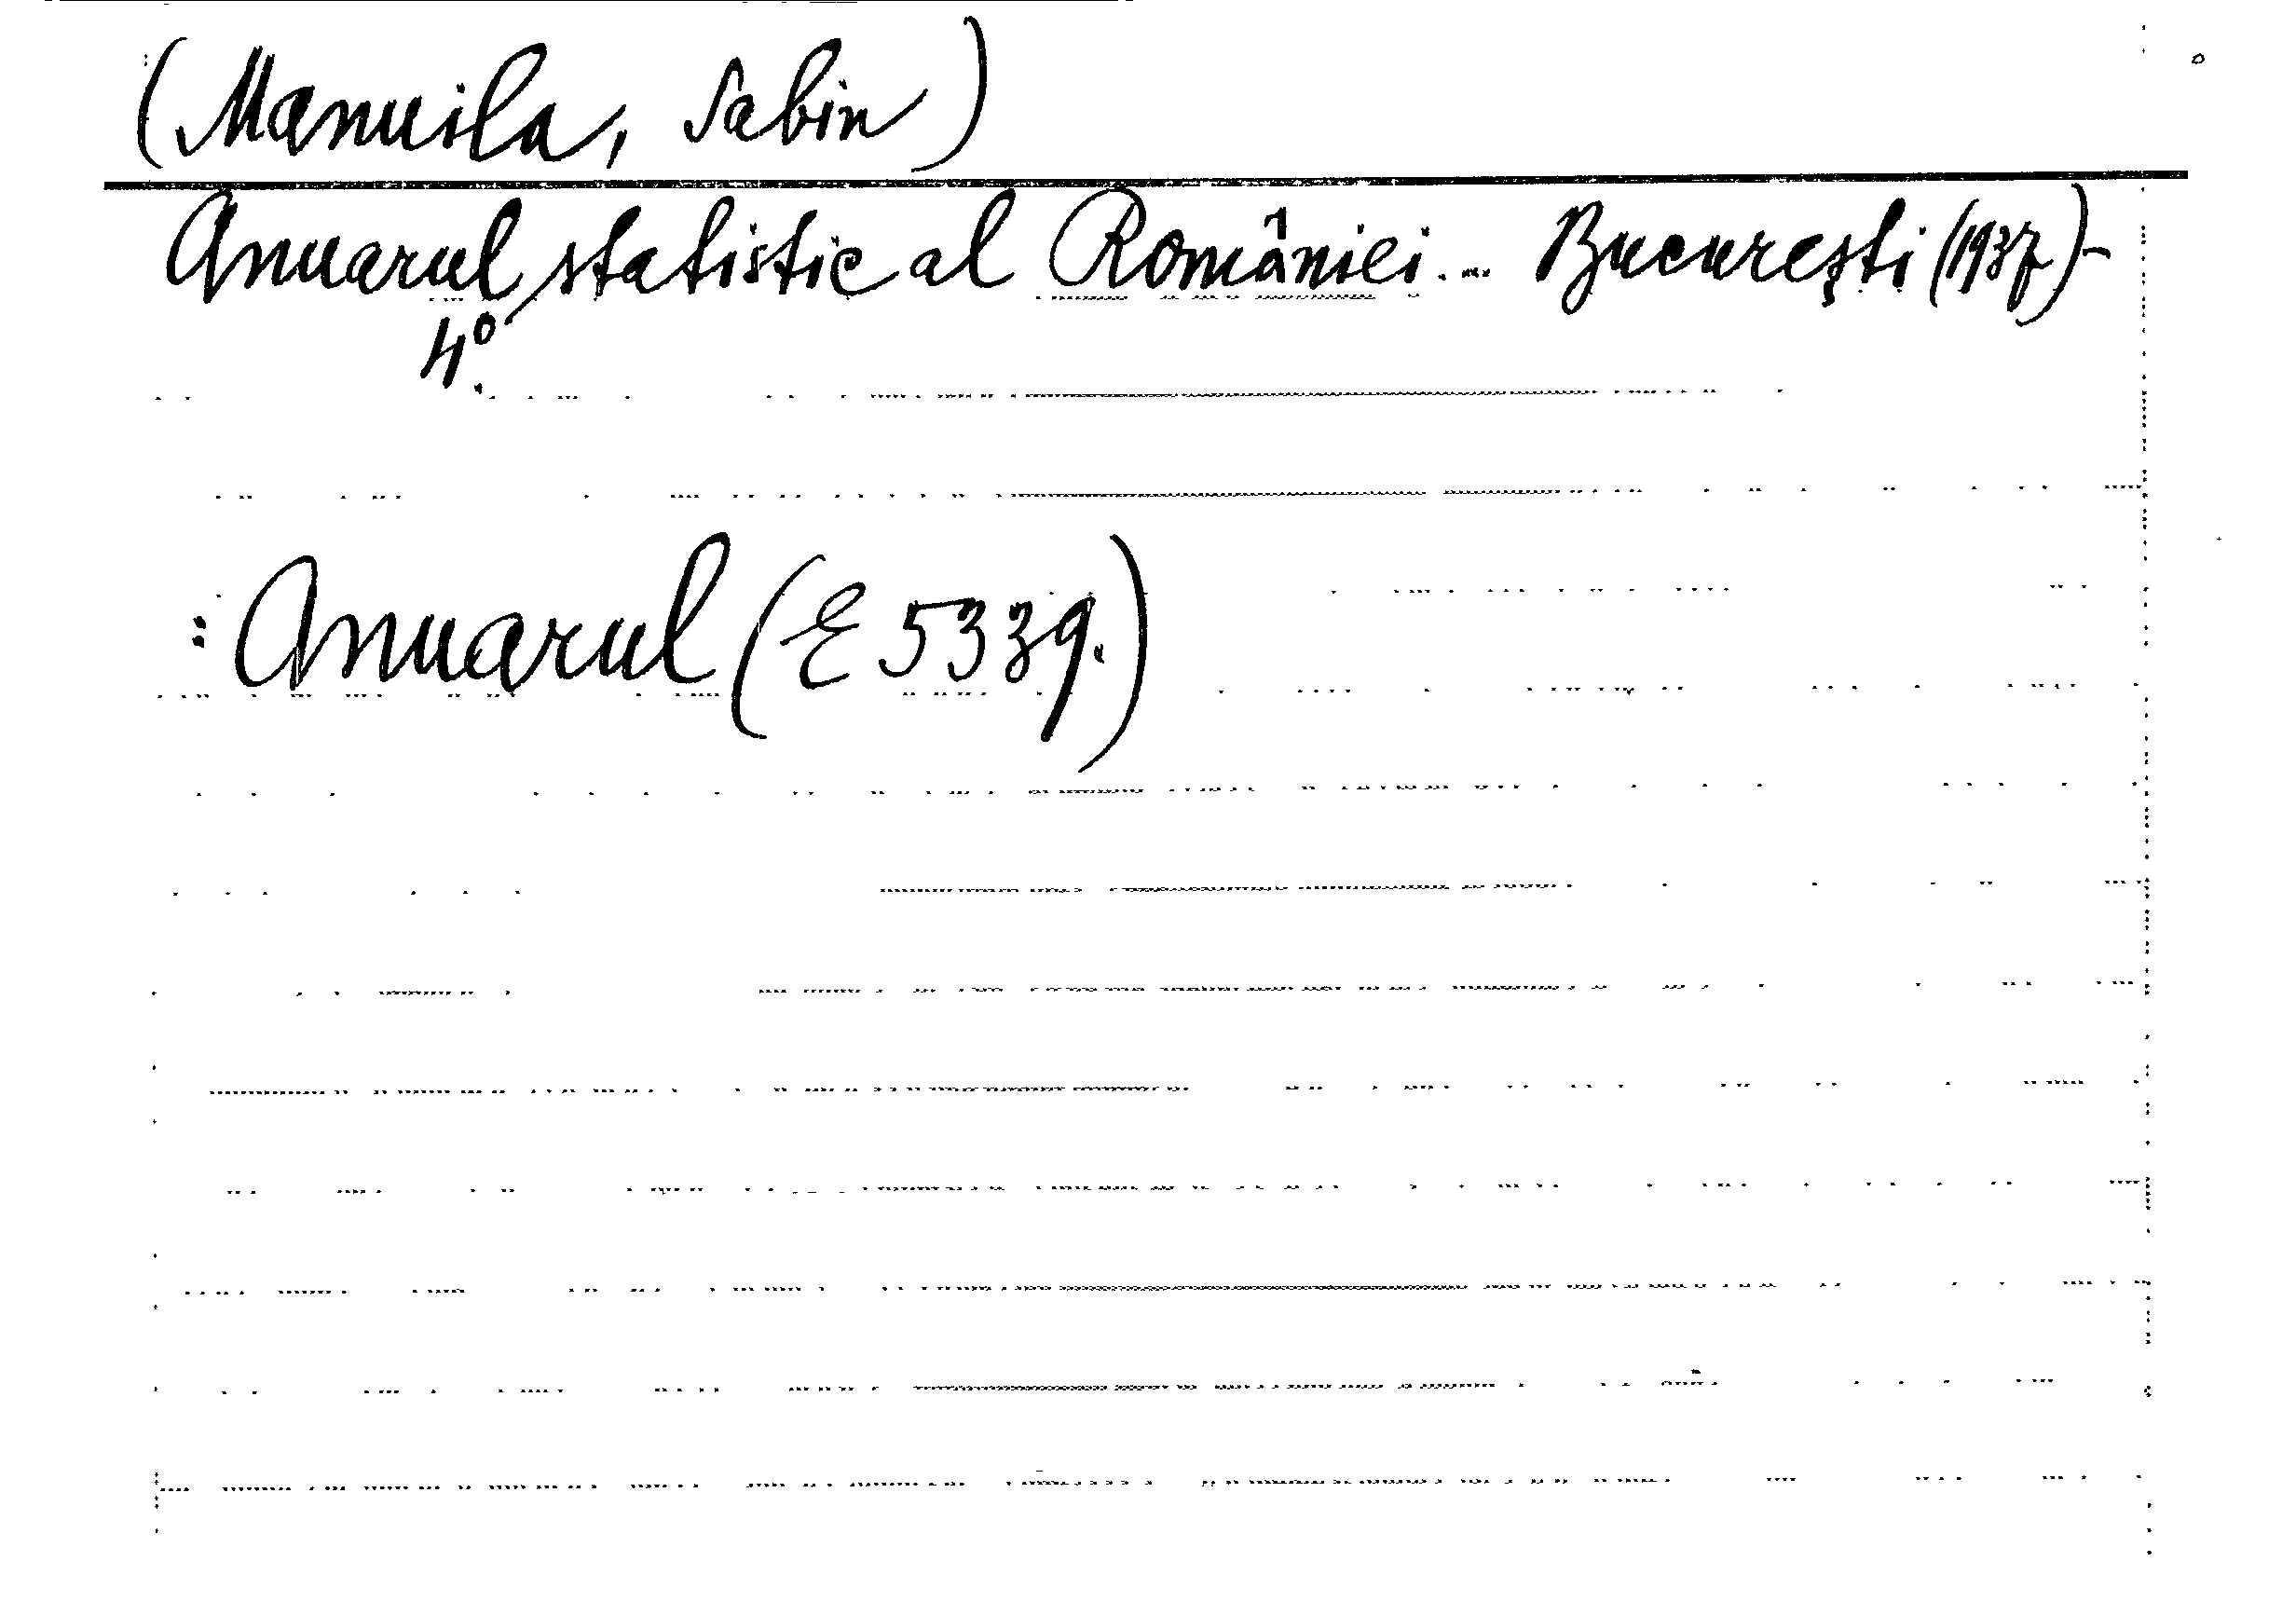 (Manuila, Sabin)
Anuarul statistic al României... București (1937)-
4º.
: Anuarul (E 5339.)